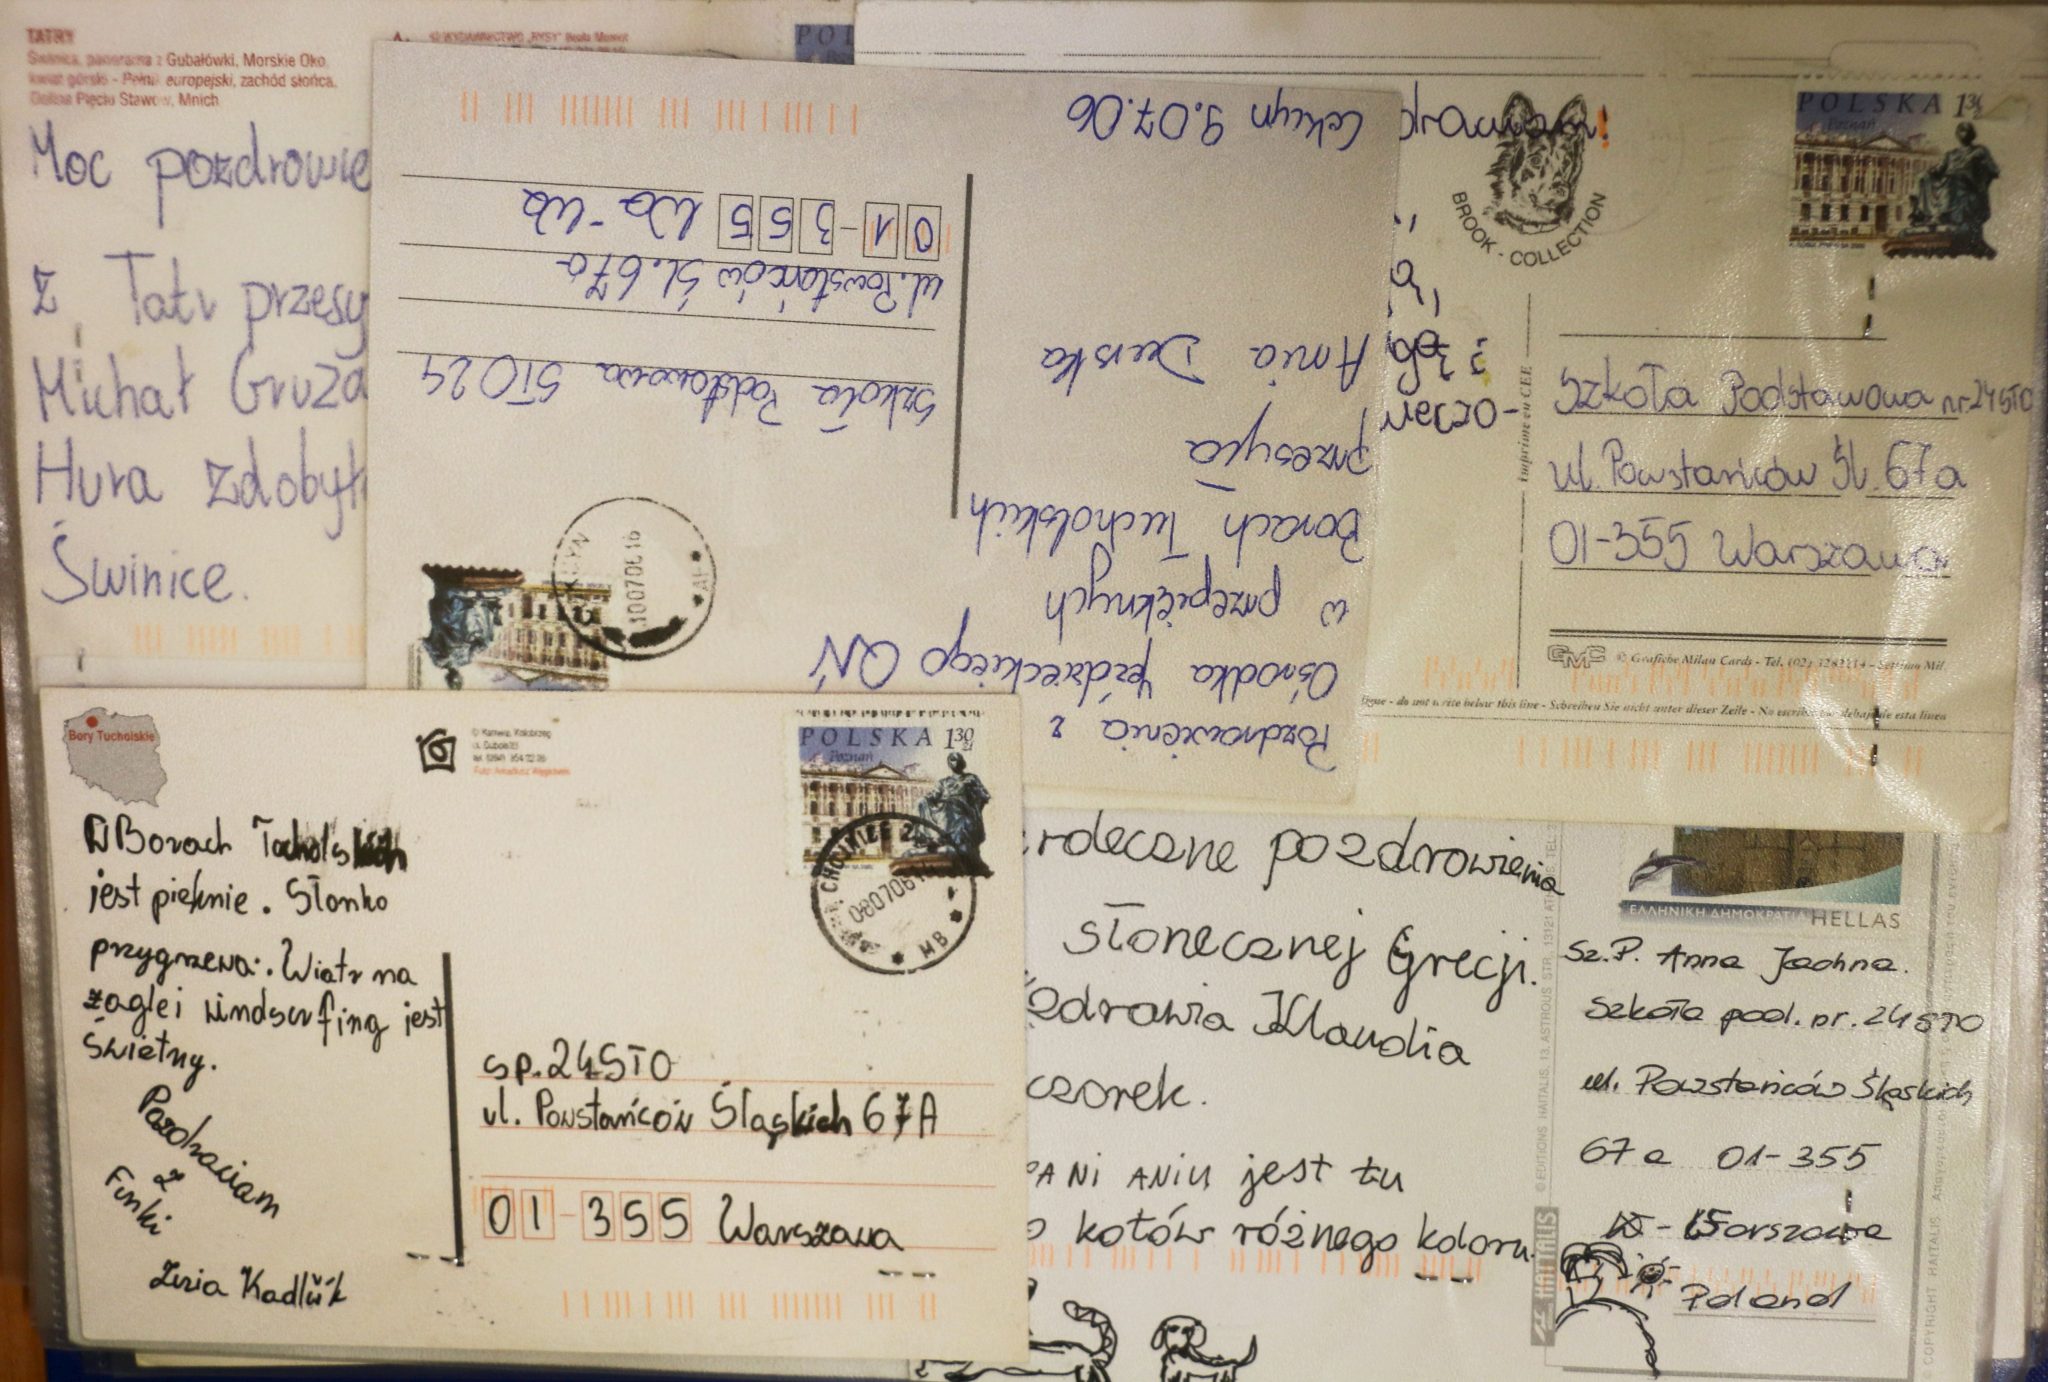 TATRY
Świnica, panorama z Gubałówki, Morskie Oko,
kwiat górski - Pełnik europejski, zachód słońca,
Dolina Pięciu Stawów, Mnich
Moc pozdrowie
z Tatr przesy
Michał Gruza
Hura zdobyt
Świnice.
POL
Cekcyn 9.07.06
Pozdrowienia z
Ośrodka Jeździeckiego
w przepięknych
Borach Tucholskich
przesyła
Ania Derska
Szkoła Podstawowa STO 24
ul. Powstańców Śl. 67a
01-355 Wa-wa
100706 16
BROOK - COLLECTION
POLSKA 1
Poznań
imprimé en CEE
Szkoła Podstawowa nr 24 STO
ul. Powstańców Śl. 67a
01-355 Warszawa
GMC © Grafiche Milan Cards - Tel. (02)
ligne - do not write below this line - Schreiben Sie nicht unter dieser Zeile - No escriba por debajo de esta linea
Bory Tucholskie
© Kamera, Kołobrzeg
POLSKA 1³⁰ zł
Poznań
CHOJNICE 2
080706
MB
W Borach Tucholskich
jest pieknie. Słonko
przygrzewa. Wiatr na
żaglei windsurfing jest
świetny.
Pozdraciam
z
Funki
Zuzia Kadlŭk
sp. 24 STO
ul. Powstańców Śląskich 67A
01-355 Warszawa
rdeczne pozdrowienia
słonecznej Grecji.
zdrawia Klaudia
czorek.
PANI ANIU jest tu
kotów różnego koloru.
ΕΛΛΗΝΙΚΗ ΔΗΜΟΚΡΑΤΙΑ HELLAS
Sz.P. Anna Jachna.
Szkoła pod. nr. 24 STO
ul. Powstańców Śląskich
67a 01-355
Warszawa
Poland
HAITALIS
© EDITIONS HAITALIS, 13, ASTROUS STR. 13121
© COPYRIGHT HAITALIS